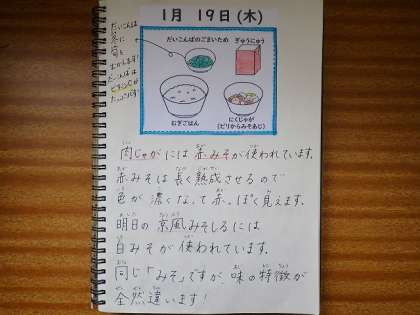 1月 19日(木)
だいこんは
冬に
旬を
むかえます!
だいこんばは
ビタミンCが
たっぷりです!
だいこんばのごまいため
ぎゅうにゅう
むぎごはん
にくじゃが
(ピリからみそあじ)
肉じゃがには赤みそが使われています。
赤みそは長く熟成させるので
色が濃くなって赤っぽく見えます。
明日の京風みそしるには
白みそが使われています。
同じ「みそ」ですが、味の特徴が
全然違います!